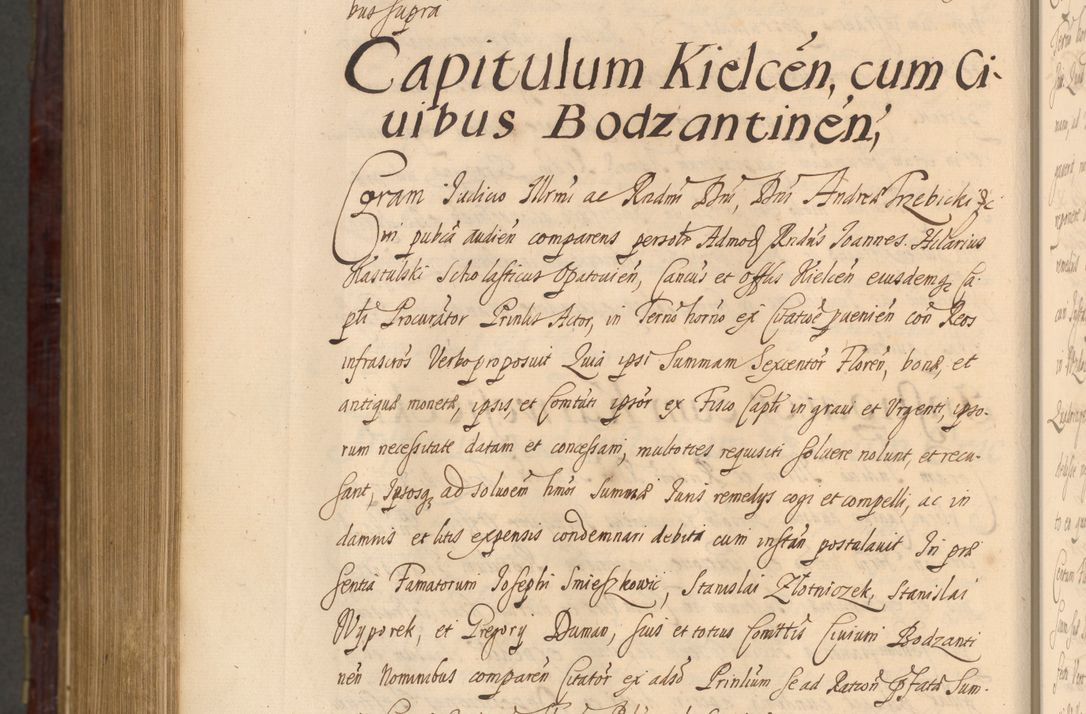 bus supra
Capitulum Kielcén, cum Ci-
uibus Bodzantinén,
Coram Iudicio Illrmi ac Rndmi Dni, Dni Andreæ Trzebicki &c
in publca audien comparens personr Admod Rndus Ioannes Hilarius
Hastulski Scholasticus Opatouien, Cancus et Offlis Kielcen eiusdemq Ca-
pli Procurator Prinlis Actor, in Termo horno ex Citatioe puenien con Reos
infrascros Verbo proposuit Quia ipsi Summam Sexcentor Floren, bonæ, et
antiquæ monetæ, ipsis, et Comtati ipsor ex Fisco Capli in graui et Urgenti, ipso-
rum necessitate datam et concessam, multoties requisiti soluere nolunt, et recu-
sant, Ipsosq ad soluoem hmoi Summæ Iuris remedys cogi et compelli, ac in
damnis et litis expensis condemnari debita cum instan postulauit In præ
sentia Famatorum Iosephi Smieszkowic, Stanislai Złotniczek, Stanislai
Wyporek, et Gregory Duman, suis et totius Comttis Ciuium Bodzanti
nen Nominibus comparen Citator ex adso Prinlium se ad Ration præfatæ Sum-